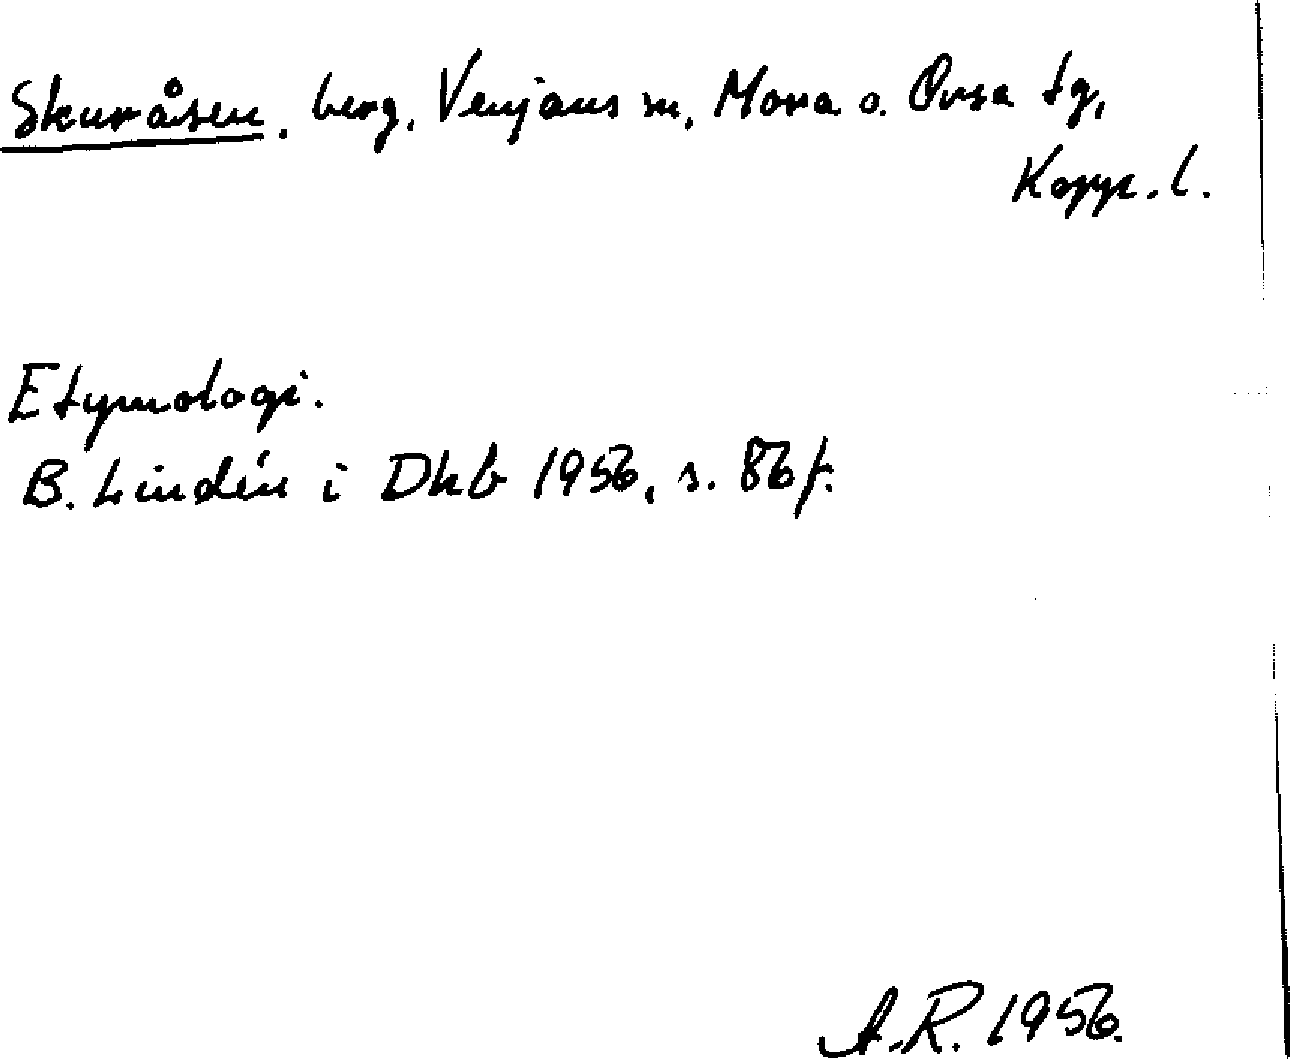 Skuråsen, berg, Venjans sn, Mora o. Orsa tg,
Kopp. l.
Etymologi.
B. Lindén i Dhb 1956, s. 86 f.
A.R. 1956.